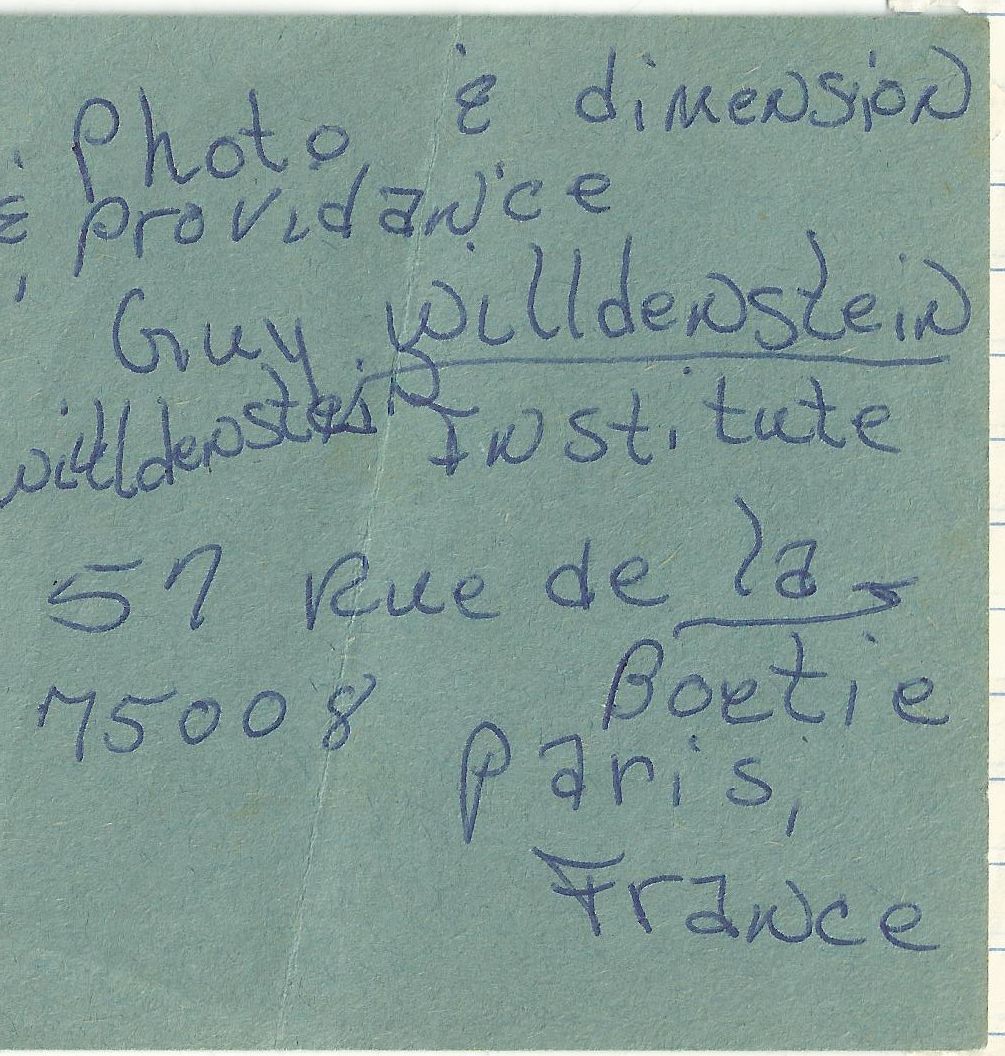 Photo & dimension
& providance
Guy willdenstein
willdenstein Institute
57 Rue de la
75008 Boetie
Paris,
France